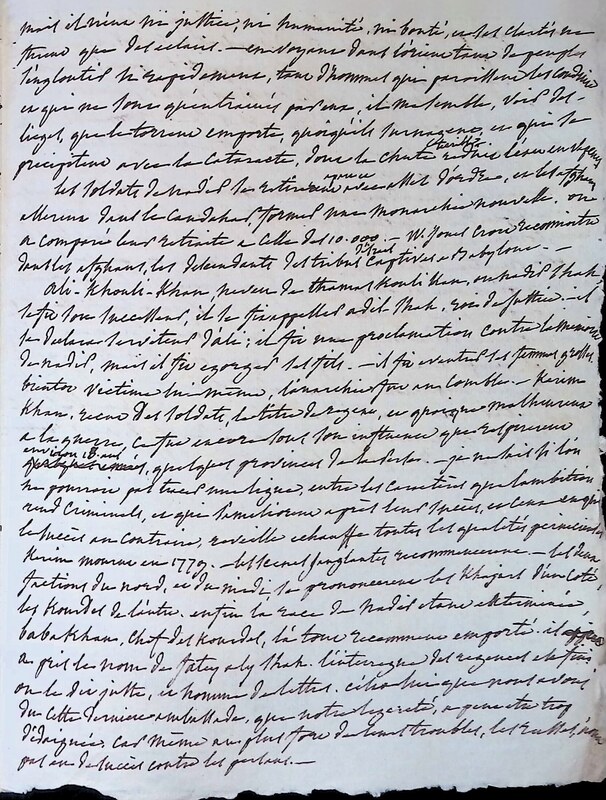 mais il n'eut ni justice, ni humanité, ni bonté, et ses clartés ne
furent que des éclairs. — en voyant dans l'orient tant de peuples
engloutis si rapidement, tant d'hommes que paroissent les conduire
et qui ne sont qu'entrainés par eux, il me semble, voir des
lieges, que le torrent emporte, quoiqu'ils surnagent, et qui se
précipitent avec la cataracte, dont la chute
les soldats de nadir se retirerent avec assez d'ordre, et les afghans
allerent dans le Candahar, former une monarchie nouvelle. on
a comparé leur retraite a celle des 10.000 — W. Jones croit reconnoitre
dans les afghans, les descendants des tribus juives captives a Babylone. —
Ali-Khouli-Khan, neveu de thamas Kouli Kan, ou nadir Shah,
se fit son successeur, il se fit appeller adil Shah, roi de justice. — il
se declara serviteur d'ali; il fit une proclamation contre la memoire
de nadir, mais il fit egorger ses fils. — il fit eventrer les femmes grosses
bientot victime lui même, l'anarchie fut au comble. — Kerim
Khan, recut des soldats, le titre de regent, et quoique malheureux
a la guerre, ce fut encore sous son influence que respirerent
environ 18 ans
quelques provinces de la Perse. — je ne sais si l'on
ne pourroit pas tracer une ligne, entre les caractères que l'ambition
rend criminels, et qui s'ameliorent après leurs succès, et ceux en qui
le succès au contraire, reveille echauffe toutes les qualités pernicieuses
Kerim mourut en 1779. — les scenes sanglantes recommencerent. — les deux
factions du nord, et du midi, se prononcerent les Khajars d'un coté
les Kourdes de l'autre. enfin la race de Nadir etant exterminée
baba Khan, chef des Kourdes, l'a tout recemment emporté. il
a pris le nom de fatey aly Shah. l'interregne des regences est fini
on le dit juste, et homme de lettres. c'est lui que nous avons
du cette derniere ambassade, que notre legereté, a peut être trop
dédaignée. car même au plus fort de leurs troubles, les russes, n'ont
pas eu de succès contre les persans. —